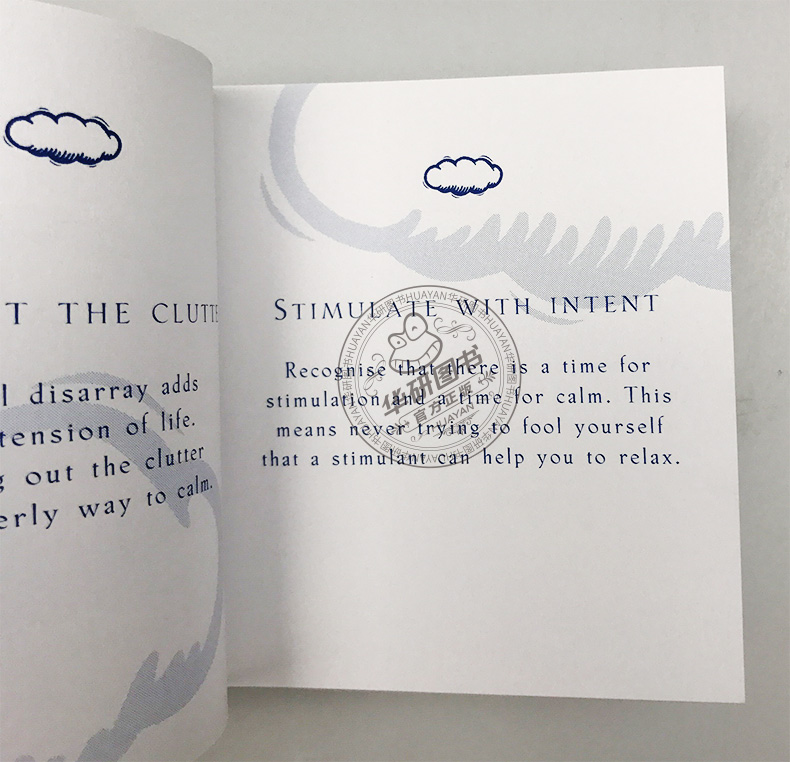 T THE CLUTTE
l disarray adds
tension of life.
g out the clutter
erly way to calm.
STIMULATE WITH INTENT
Recognise that there is a time for
stimulation and a time for calm. This
means never trying to fool yourself
that a stimulant can help you to relax.
华研图书HUAYAN华研图书HUAYAN
华研图书
官方正版
HUAYAN